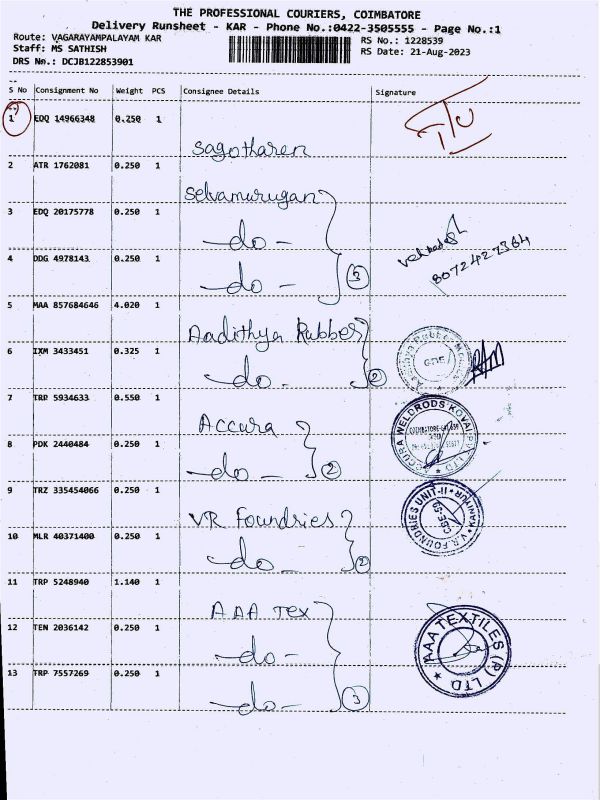 THE PROFESSIONAL COURIERS, COIMBATORE
Delivery Runsheet - KAR - Phone No.:0422-3505555 - Page No.:1
Route: VAGARAYAMPALAYAM KAR
RS No.: 1228539
Staff: MS SATHISH
RS Date: 21-Aug-2023
DRS No.: DCJB122853901
S No Consignment No Weight PCS Consignee Details Signature
1 EDQ 14966348 0.250 1
Sagotharen
2 ATR 1762081 0.250 1
Selvamurugan
3 EDQ 20175778 0.250 1
-do-
4 DDG 4978143 0.250 1
-do- 3
8072427364
5 MAA 857684646 4.020 1
Aadithya Rubber
6 IXM 3433451 0.325 1
-do- 2
7 TRP 5934633 0.550 1
Accura
ACCURA WELDRODS KOVAI (P) LTD
8 PDK 2440484 0.250 1
-do- 2
9 TRZ 335454066 0.250 1
VR Foundries
V.R. FOUNDRIES UNIT-II
10 MLR 40371400 0.250 1
-do- 2
11 TRP 5248940 1.140 1
AAA Tex
12 TEN 2036142 0.250 1
-do-
AAA TEXTILES (P) LTD
13 TRP 7557269 0.250 1
-do- 3